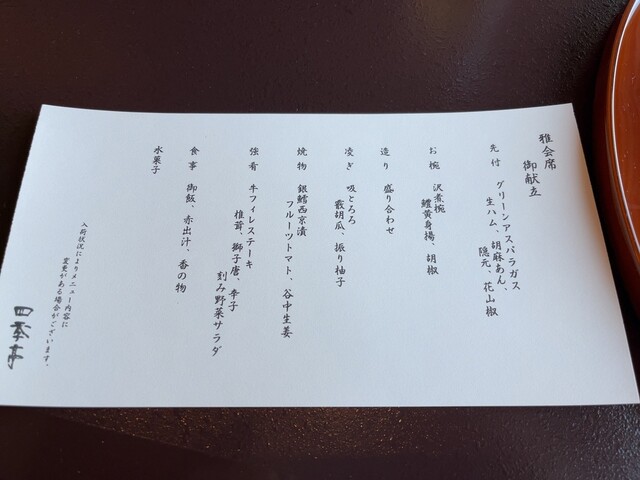 雅会席
御献立
先付 グリーンアスパラガス
生ハム、胡麻あん、
隠元、花山椒
お椀 沢煮椀
鱧黄身揚、胡椒
造り 盛り合わせ
凌ぎ 吸とろろ
叢胡瓜、振り柚子
焼物 銀鱈西京漬
フルーツトマト、谷中生姜
強肴 牛フィレステーキ
椎茸、獅子唐、辛子
刻み野菜サラダ
食事 御飯、赤出汁、香の物
水菓子
入荷状況によりメニュー内容に
変更がある場合がございます。
四季亭